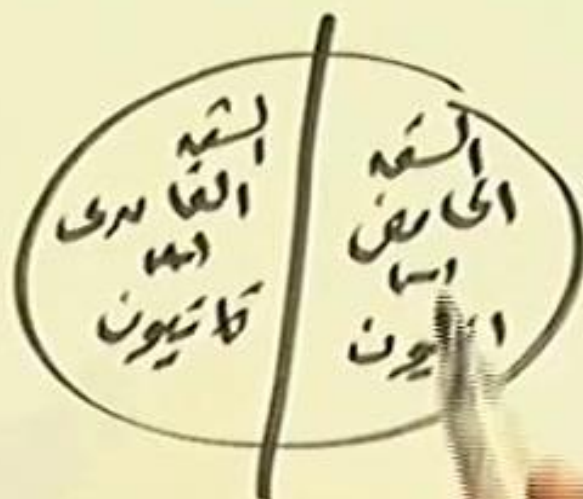 الشق
الحامضي
اسمه
انيون
الشق
القاعدي
اسمه
كاتيون